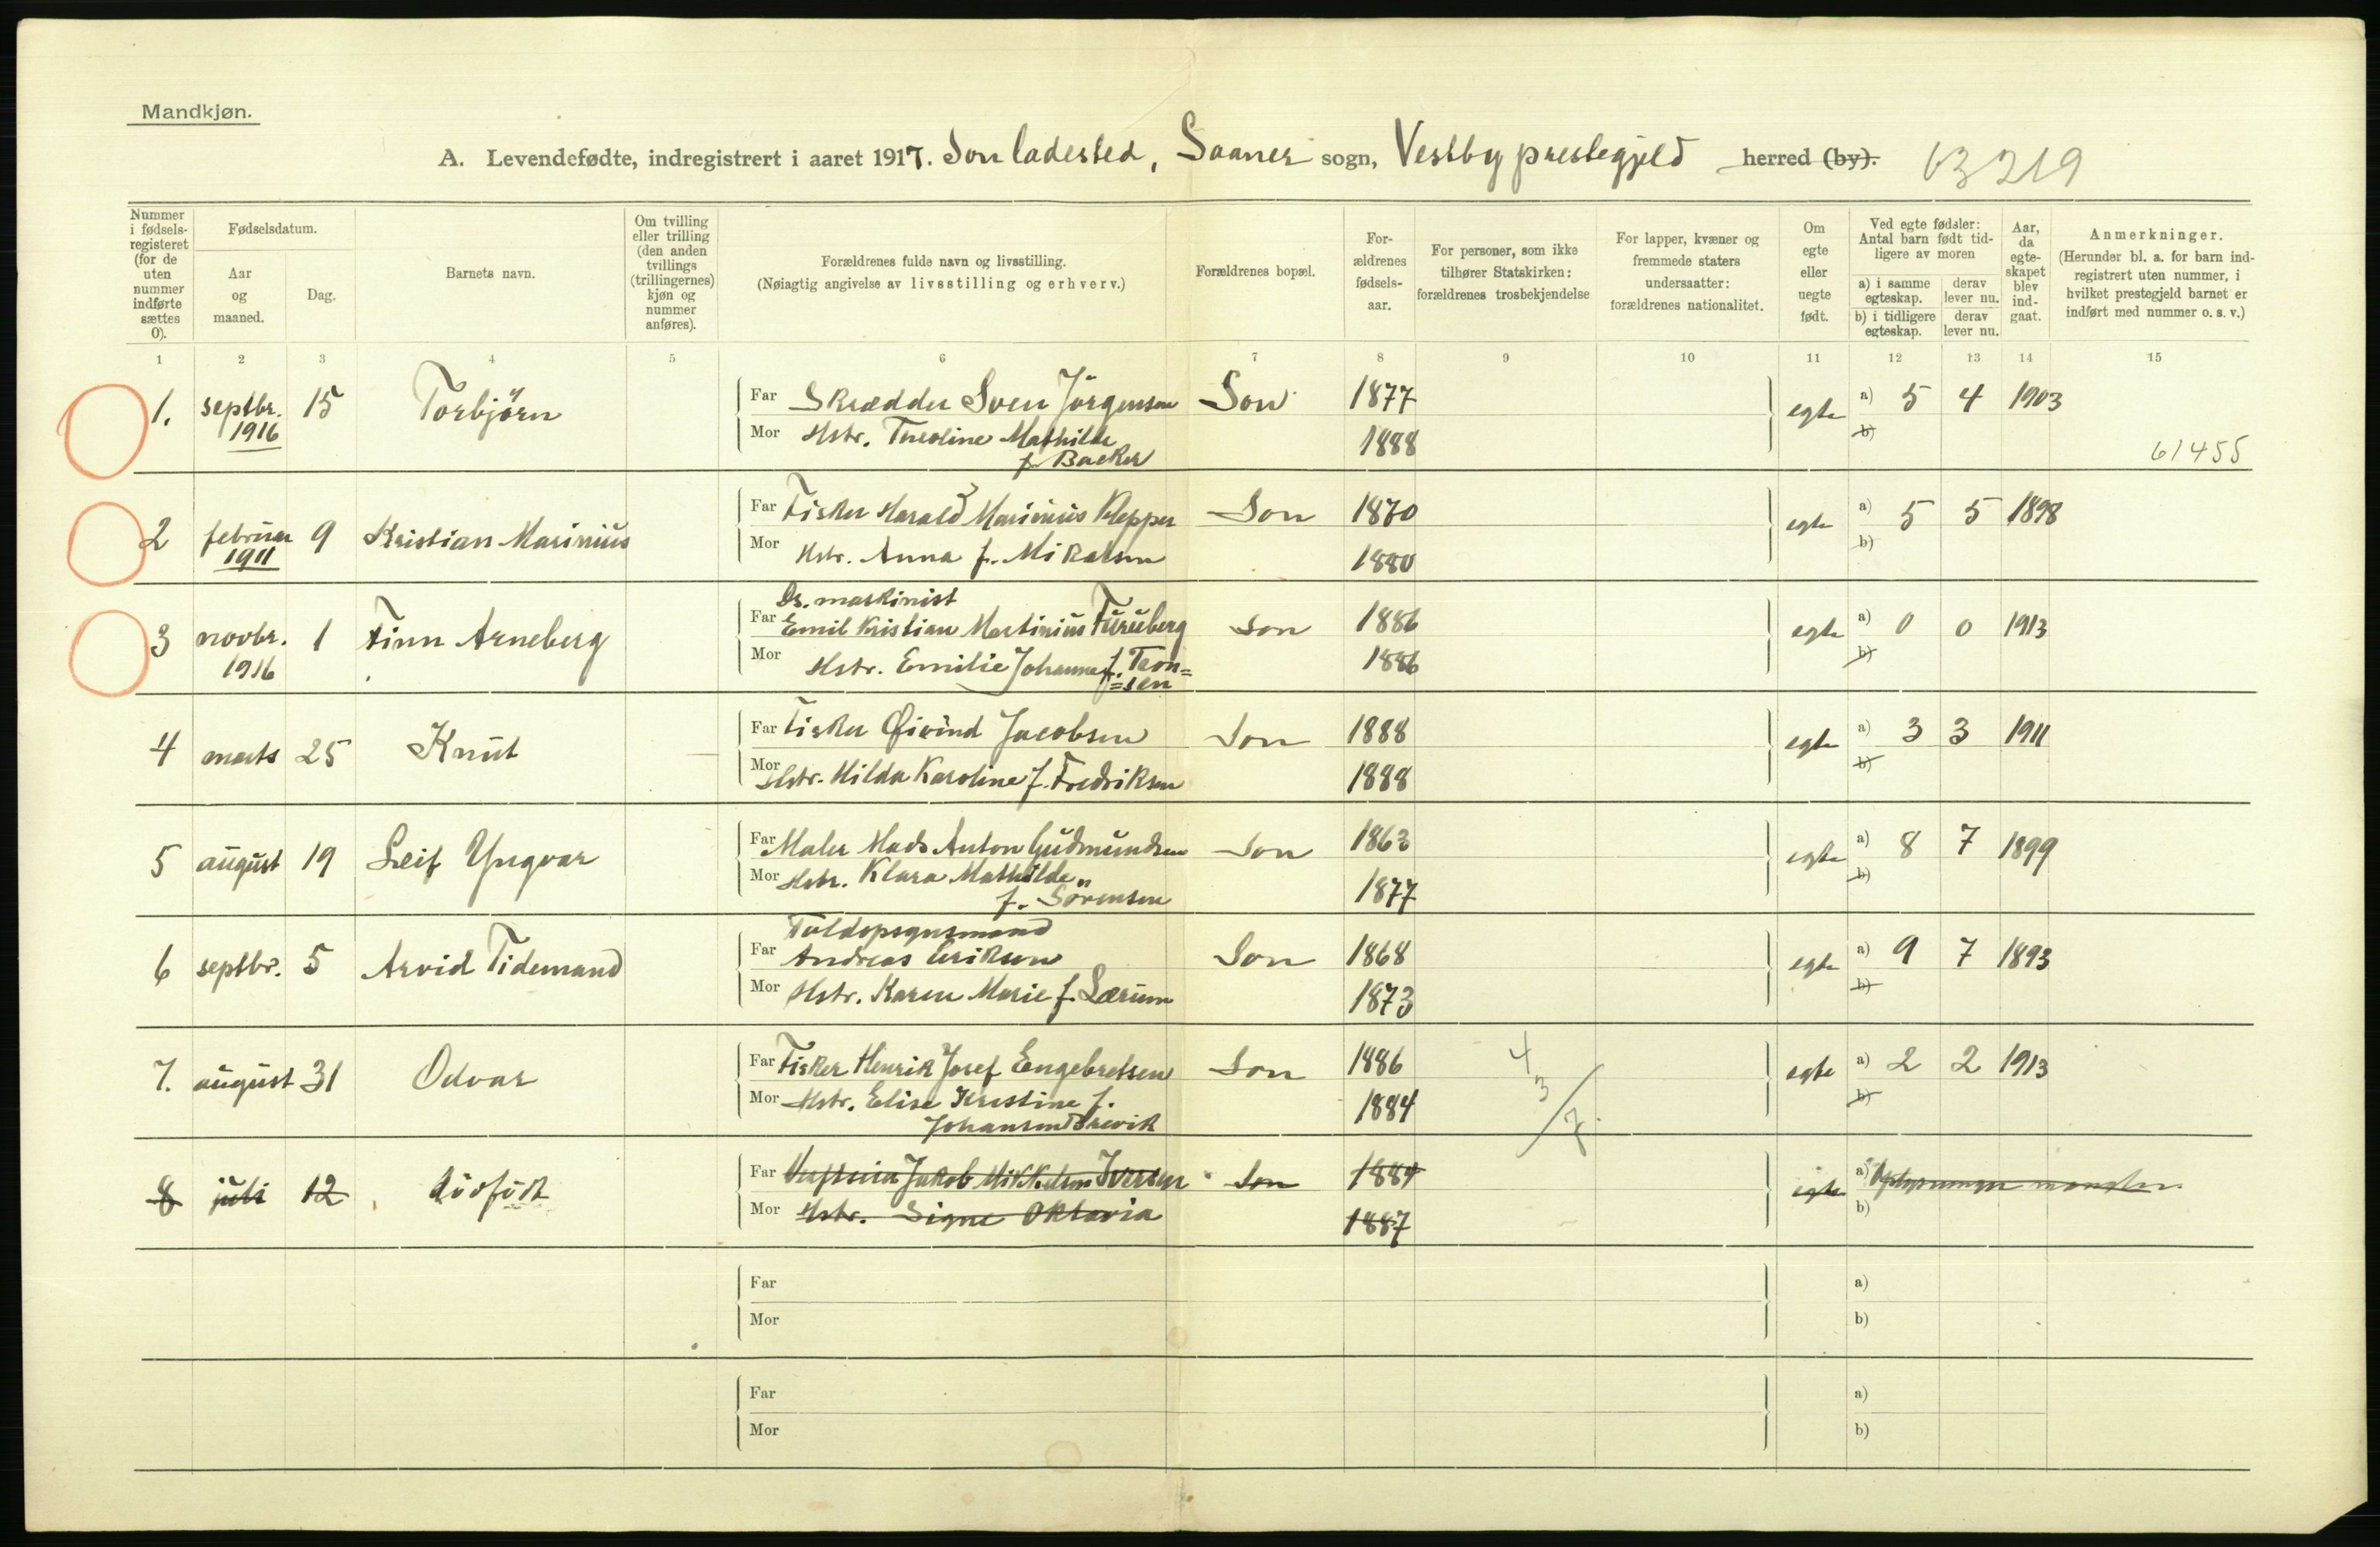 Mandkjøn.
A. Levendefødte, indregistrert i aaret 1917. Son ladested, Saaner sogn, Vestby prestegjeld herred (by). 63219
Nummer i fødsels-registeret (for de uten nummer indførte sættes 0).
Fødselsdatum.
Aar og maaned.
Dag.
Barnets navn.
Om tvilling eller trilling (den anden tvillings (trillingernes) kjøn og nummer anføres).
Forældrenes fulde navn og livsstilling.
(Nøiagtig angivelse av livsstilling og erhverv.)
Forældrenes bopæl.
For-ældrenes fødsels-aar.
For personer, som ikke tilhører Statskirken: forældrenes trosbekjendelse
For lapper, kvæner og fremmede staters undersaatter: forældrenes nationalitet.
Om egte eller uegte født.
Ved egte fødsler: Antal barn født tid-ligere av moren
a) i samme egteskap.
derav lever nu.
b) i tidligere egteskap.
derav lever nu.
Aar, da egte-skapet blev ind-gaat.
Anmerkninger.
(Herunder bl. a. for barn ind-registrert uten nummer, i hvilket prestegjeld barnet er indført med nummer o. s. v.)
1 2 3 4 5 6 7 8 9 10 11 12 13 14 15
1. septbr. 15 Torbjörn Far Skrædder Sven Jörgensen Son 1877 egte a) 5 4 1903
1916 Mor Hstr. Mathilde 1888 b)
f. Backer 61455
2 februar 9 Kristian Marinius Far Fisker Harald Marinius Klepper Son 1870 egte a) 5 5 1898
1911 Mor Hstr. Anna f. Mikalsen 1880 b)
Ds. maskinist
3 novbr. 1 Finn Arneberg Far Emil Kristian Martinius Furuberg Son 1886 egte a) 0 0 1913
1916 Mor Hstr. Emilie Johanne f. Tron=
=sen 1886 b)
4 marts 25 Knut Far Fisker Øivind Jacobsen Son 1888 egte a) 3 3 1911
Mor Hstr. Hilda Karoline f. Fredriksen 1888 b)
5 august 19 Leif Yngvar Far Maler Mads Anton Gudmundsen Son 1863 egte a) 8 7 1899
Mor Hstr. Klara Mathilde 1877 b)
f. Sörensen
Toldopsynsmand
6 septbr. 5 Arvid Tidemand Far Andreas Eriksen Son 1868 egte a) 9 7 1893
Mor Hstr. Karen Marie f. Lærum 1873 b)
7. august 31 Odvar Far Fisker Henrik Josef Engebretsen Son 1886 4 egte a) 2 2 1913
Mor Hstr. Elise Kristine f. 1884 3/7 b)
Johansen Brevik
8 juli 12 dödfödt Far Jakob Mikkelsen Iversen Son 1884 egte a) Oplysninger mangler.
Mor Hstr. Signe Oktavia 1887 b)
Far a)
Mor b)
Far a)
Mor b)